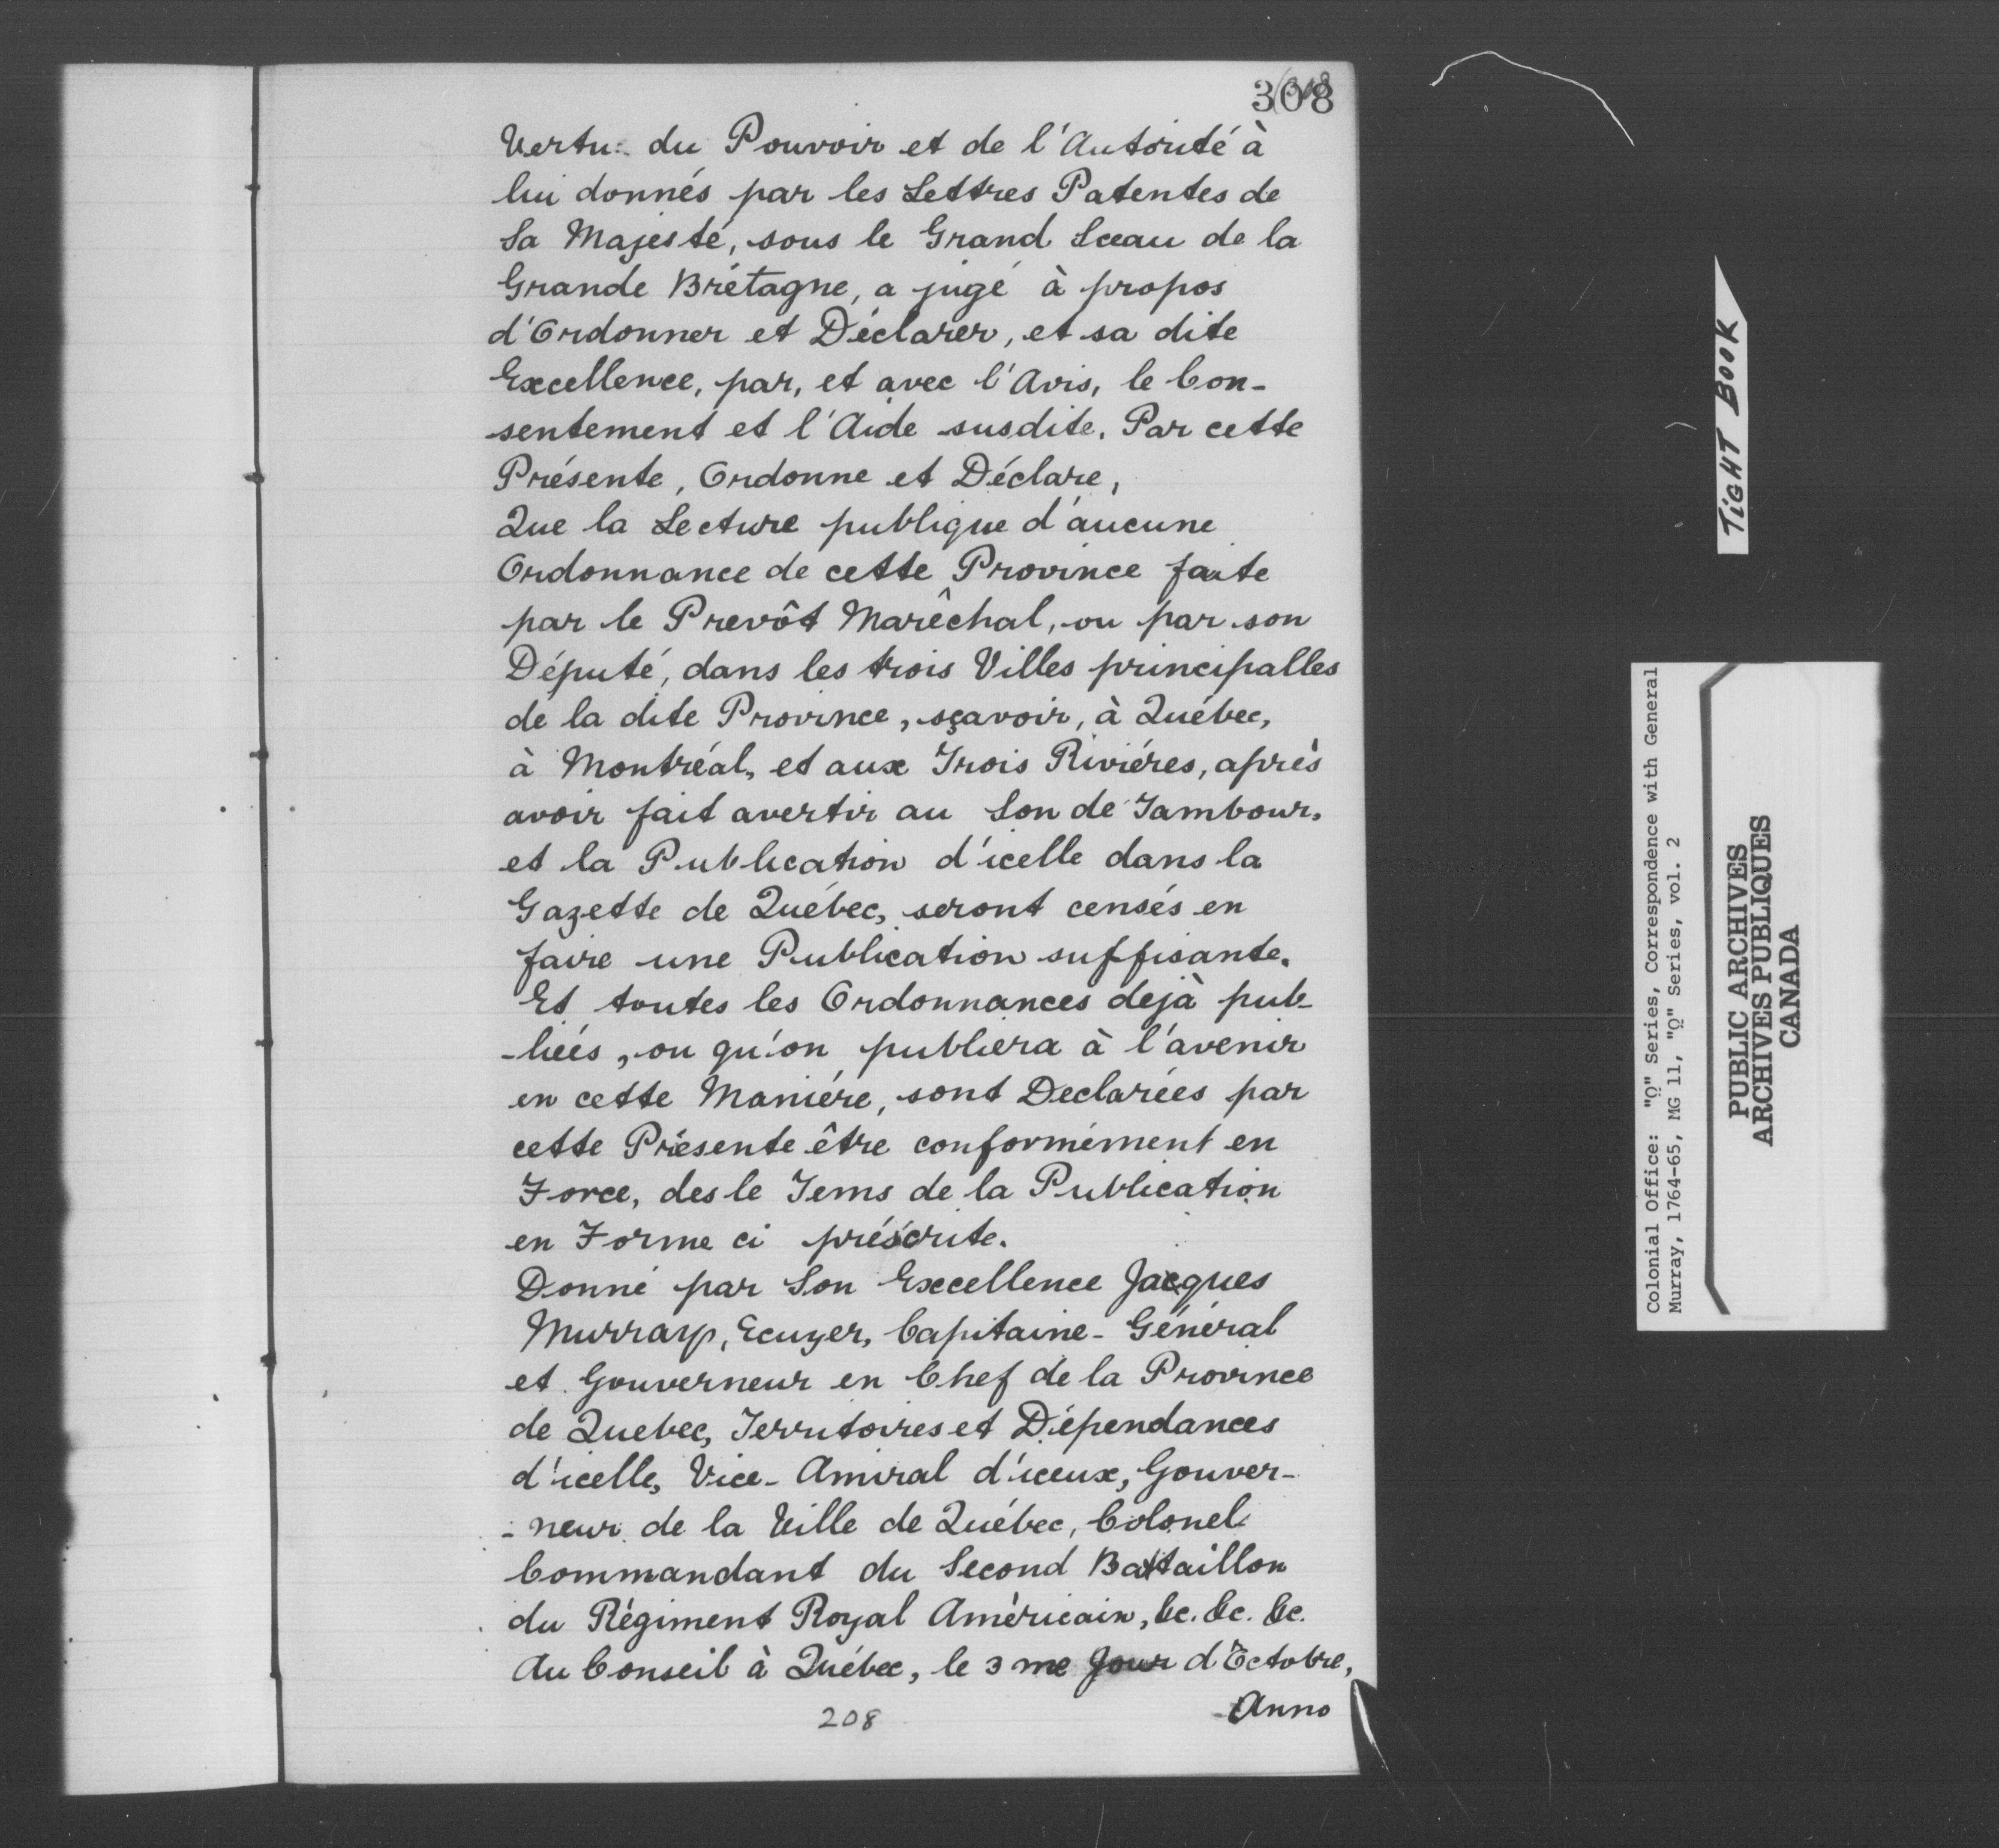 308
Vertu du Pouvoir et de l'Autorité à
lui donnés par les Lettres Patentes de
Sa Majesté, sous le Grand Sceau de la
Grande Brétagne, a jugé à propos
d'Ordonner et Déclarer, et sa dite
Excellence, par, et avec l'Avis, le Con-
sentement et l'Aide susdite, Par cette
Présente, Ordonne et Déclare,
Que la Lecture publique d'aucune
Ordonnance de cette Province faite
par le Prevôt Marêchal, ou par son
Député, dans les trois Villes principalles
de la dite Province, sçavoir, à Québec,
à Montréal, et aux Trois Riviéres, aprés
avoir fait avertir au Son de Tambour,
et la Publication d'icelle dans la
Gazette de Québec, seront censés en
faire une Publication suffisante.
Et toutes les Ordonnances dejà pub-
-liées, ou qu'on publiera à l'avenir
en cette Maniére, sont Declarées par
cette Présente être conformément en
Force, des le Tems de la Publication
en Forme ci préscrite.
Donné par Son Excellence Jacques
Murray, Ecuyer, Capitaine-Général
et Gouverneur en Chef de la Province
de Quebec, Territoires et Dépendances
d'icelle, Vice-Amiral d'iceux, Gouver-
-neur de la Ville de Québec, Colonel
Commandant du Second Battaillon
du Régiment Royal Américain, &c. &c. &c.
Au Conseil à Québec, le 3 me Jour d'Octobre,
Anno
208
TIGHT BOOK
Colonial Office: "Q" Series, Correspondence with General
Murray, 1764-65, MG 11, "Q" Series, vol. 2
PUBLIC ARCHIVES
ARCHIVES PUBLIQUES
CANADA